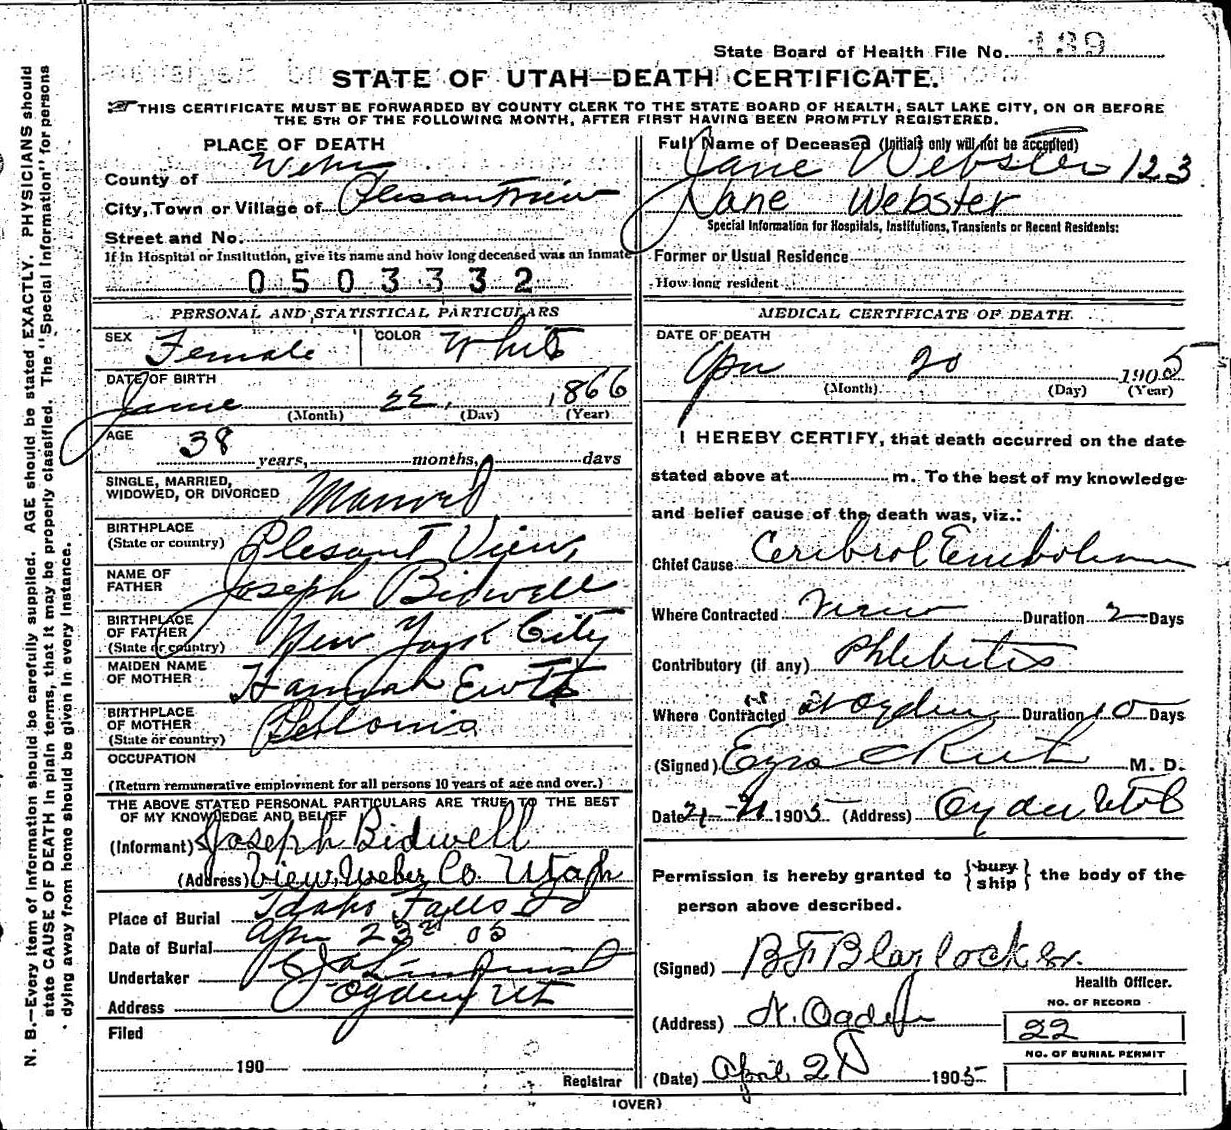 State Board of Health File No. 139
STATE OF UTAH—DEATH CERTIFICATE.
THIS CERTIFICATE MUST BE FORWARDED BY COUNTY CLERK TO THE STATE BOARD OF HEALTH, SALT LAKE CITY, ON OR BEFORE
THE 5TH OF THE FOLLOWING MONTH, AFTER FIRST HAVING BEEN PROMPTLY REGISTERED.
PLACE OF DEATH
County of Weber
City, Town or Village of Plesant View
Street and No.
If in Hospital or Institution, give its name and how long deceased was an inmate
0503332
PERSONAL AND STATISTICAL PARTICULARS
SEX Female COLOR White
DATE OF BIRTH
June 22, 1866
(Month) (Day) (Year)
AGE
38 years, months, days
SINGLE, MARRIED,
WIDOWED, OR DIVORCED Married
BIRTHPLACE
(State or country) Plesant View,
NAME OF
FATHER Joseph Bidwell
BIRTHPLACE
OF FATHER
(State or country) New York City
MAIDEN NAME
OF MOTHER Hannah
BIRTHPLACE
OF MOTHER
(State or country)
OCCUPATION
(Return remunerative employment for all persons 10 years of age and over.)
THE ABOVE STATED PERSONAL PARTICULARS ARE TRUE TO THE BEST
OF MY KNOWLEDGE AND BELIEF
(Informant) Joseph Bidwell
(Address) View, Weber Co. Utah
Place of Burial Idaho Falls Id
Date of Burial Apr 23rd 05
Undertaker
Address Ogden, Ut
Filed
190
Registrar
Full Name of Deceased (Initials only will not be accepted)
Jane Webster 123
Jane Webster
Special Information for Hospitals, Institutions, Transients or Recent Residents:
Former or Usual Residence
How long resident
MEDICAL CERTIFICATE OF DEATH.
DATE OF DEATH
Apr 20 1905
(Month) (Day) (Year)
I HEREBY CERTIFY, that death occurred on the date
stated above at m. To the best of my knowledge
and belief cause of the death was, viz.:
Chief Cause Cerebrol Embolism
Where Contracted View Duration 2 Days
Contributory (if any) Phlebitis
Where Contracted N Ogden Duration 10 Days
(Signed) Ezra C Rich M. D.
Date 21 1905 (Address) Ogden Utah
Permission is hereby granted to {bury ship} the body of the
person above described.
(Signed) B F Blaylock Sr.
Health Officer.
(Address) N. Ogden
NO. OF RECORD
22
NO. OF BURIAL PERMIT
(Date) April 21 1905
(OVER)
N. B.—Every item of information should be carefully supplied. AGE should be stated EXACTLY. PHYSICIANS should
state CAUSE OF DEATH in plain terms, that it may be properly classified. The "Special Information" for persons
dying away from home should be given in every instance.